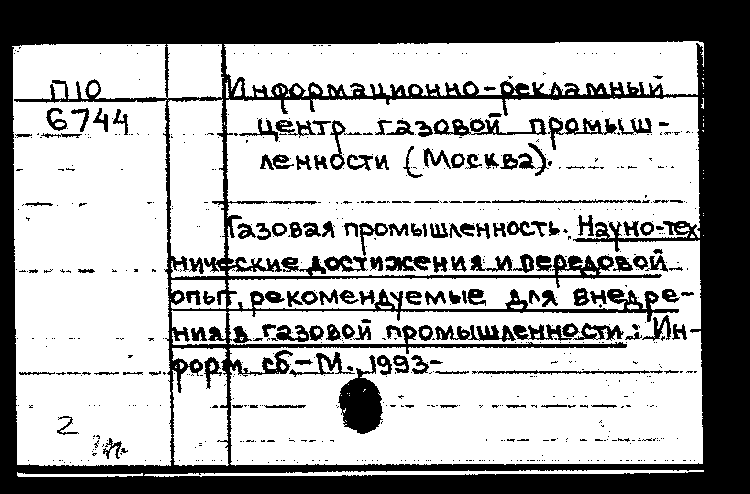 П10
6744
Информационно-рекламный
центр газовой промыш-
ленности (Москва).
Газовая промышленность. Научно-тех
нические достижения и передовой
опыт, рекомендуемые для внедре-
ния в газовой промышленности: Ин-
форм. сб.-М., 1993-
2